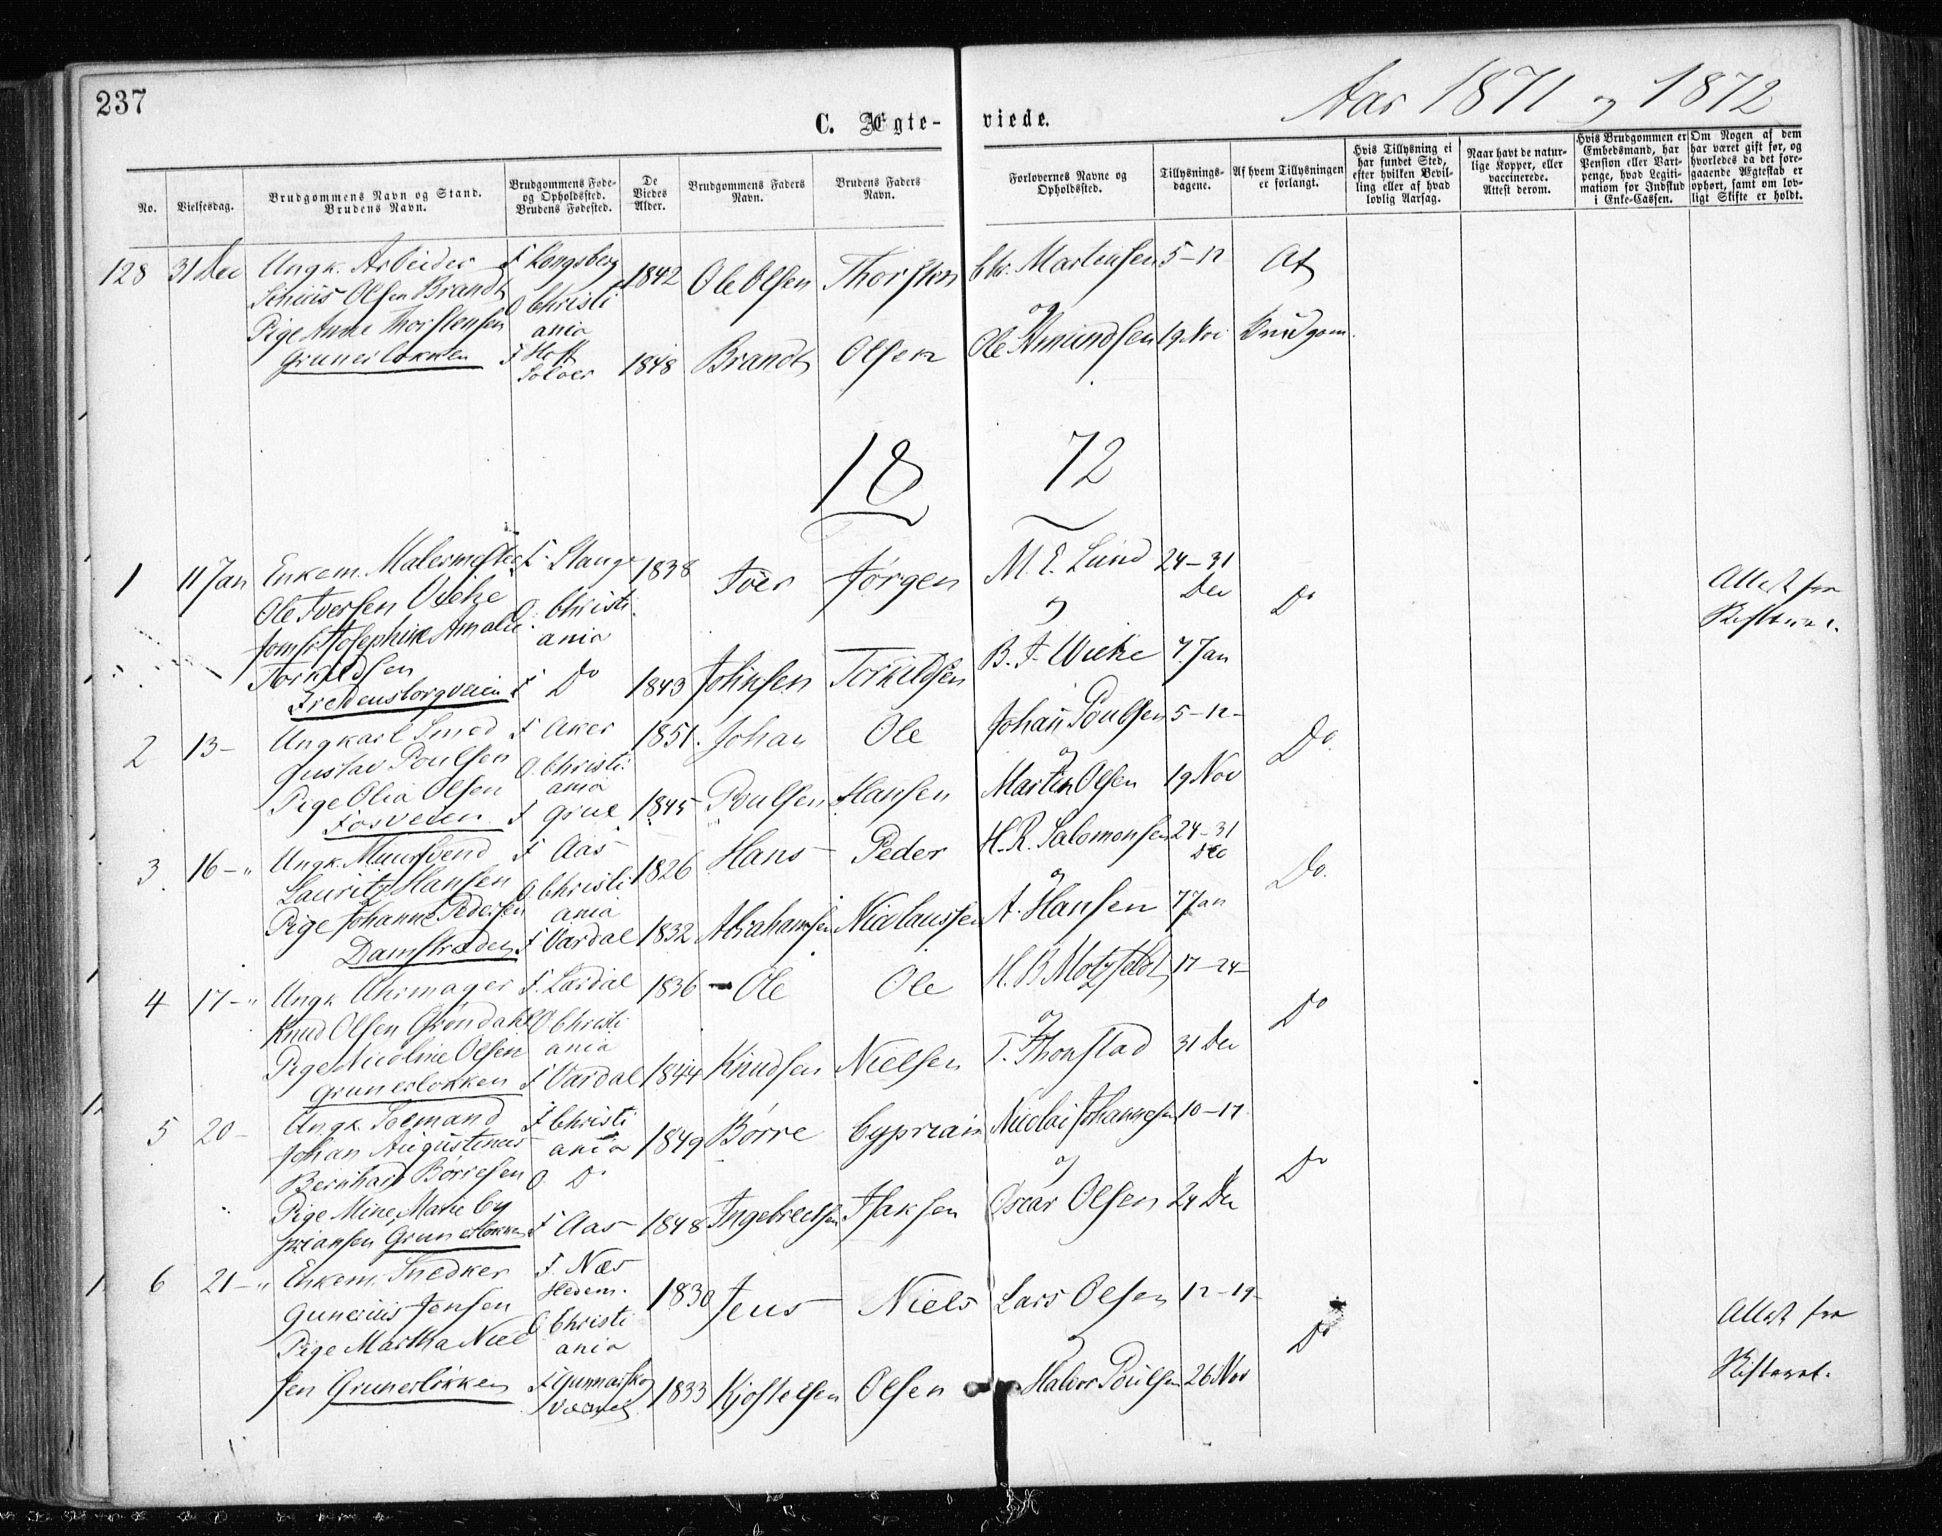 237
C. Ægteviede.
Aar 1871 og 1872
No.
Vielsesdag.
Brudgommens Navn og Stand. Brudens Navn.
Brudgommens Føde- og Opholdssted. Brudens Fødested.
De Viedes Alder.
Brudgommens Faders Navn.
Brudens Faders Navn.
Forlovernes Navne og Opholdssted.
Tillysningsdagene.
Af hvem Tillysningen er forlangt.
Hvis Tillysning ei har fundet Sted, efter hvilken Bevilling eller af hvad lovlig Aarsag.
Naar havt de naturlige Kopper, eller vaccinerede. Attest derom.
Hvis Brudgommen er Embedsmand, har Pension eller Vartpenge, hvad Legitimation for Indskud i Enke-Cassen.
Om Nogen af dem har været gift før, og hvorledes da det foregaaende Ægteskab er ophørt, samt om lovligt Skifte er holdt.
128 31 Dec Ungk. Arbeider F Kongsberg 1842 Ole Olsen Thorsten Chr. Martinsen 5-12 Af
Olsen Brandt O Christi
Pige Anne Thorstensen ania og
Grunerløkken F Hoff Soloer 1848 Brandt Olsen Ole Amundsen 19 Nov Brudgom.
18 72
1 11 Jan Enkem. Malermester F. Stange 1838 Iver Jørgen M. E. Lund 24-31 Dec Do Attest fra
Ole Iversen Wiche O. Christi og Skifteret.
Jomfr Josephine Amalie ania B. I. Wiche 7 Jan
Torkildsen
Fredensborgveien F Do 1843 Johnsen Torkildsen
2 13- Ungkarl Smed F Aker 1851. Johan Ole Johan Poulsen 5-12- Do
Gustav Poulsen O Christi og
Pige Olia Olsen ania Martin Olsen 19 Nov
Fosveien F Grue 1845 Poulsen Hansen
3. 16-" Ungk. Muursvend F Aas 1826 Hans Peder H. R. Salomonsen 24-31 Dec Do.
Lauritz Hansen O Christi og
Pige Johanne Pedersen ania A. Hansen 7 Jan
Damstrædet F Vardal 1832 Abrahamsen Nicolaussen
4 17-" Ungk Uhrmager F. Lardal 1836 Ole Ole H. B Motzfeldt 17-24- Do
Knud Olsen Grøndahl O Christi og
Pige Nicoline Olsen ania T. Thonstad 31 Dec
Grunerløkken F Vardal 1844 Knudsen Nielsen
5 20- Ungk. Sømand F Christi 1849 Børre Cyprian Nicolai Johannesen 10-17 Do
Johan Augustinus ania og
Bernhard Børresen O Do
Pige Mine Marie Cy Oscar Olsen 24 Dec
priansen Grunerløkken F Aas 1848 Ingebretsen Isaksen
6 21-" Enkem. Snedker F. Næs Hedem. 1830 Jens Niels Lars Olsen 12-19- Do Attest fra
Gunerius Jensen O Christi og
Pige Martha Niel ania Skifteret.
sen Grunerløkken F Gunnarskog 1833 Kjøstelsen Olsen Halvor Poulsen 26 Nov